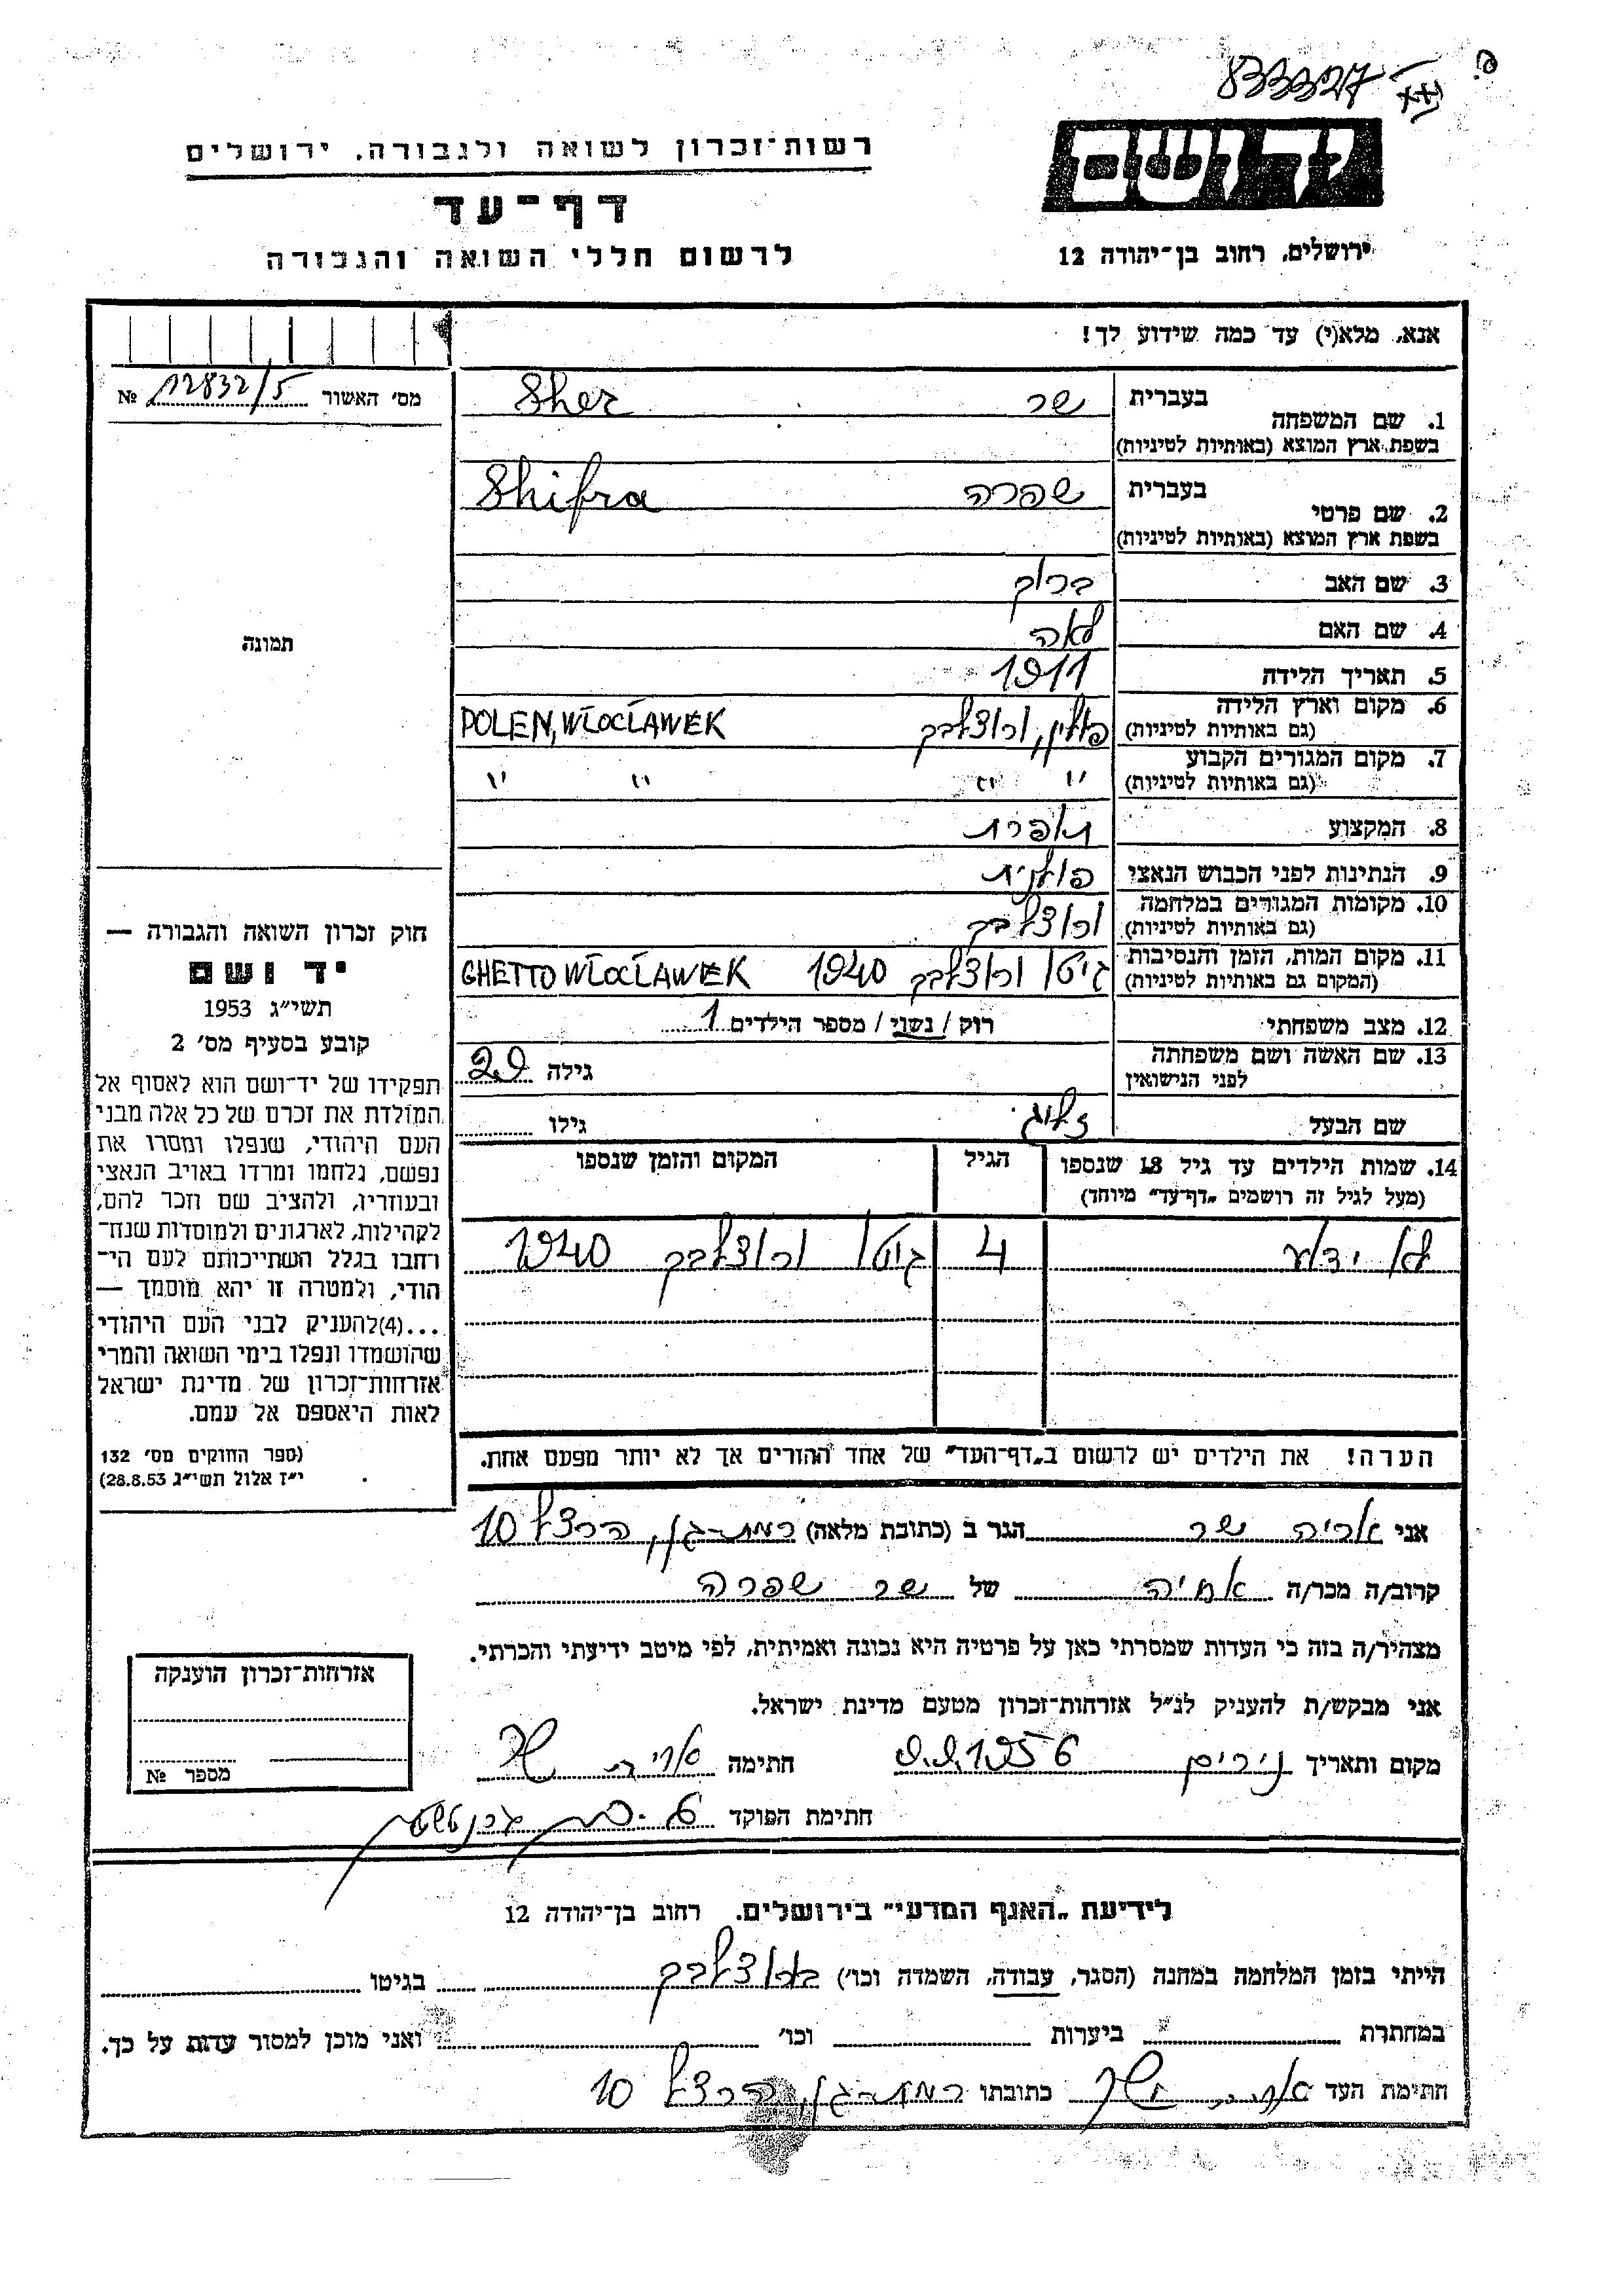 833327
רשות־זכרון לשואה ולגבורה, ירושלים
דף־עד
לרשום חללי השואה והגבורה
יד ושם
ירושלים, רחוב בן־יהודה 12
אנא, מלא(י) עד כמה שידוע לך!
מס׳ האשור 12832/5 №
תמונה
חוק זכרון השואה והגבורה —
יד ושם
תשי״ג 1953
קובע בסעיף מס׳ 2
תפקידו של יד־ושם הוא לאסוף אל
המולדת את זכרם של כל אלה מבני
העם היהודי, שנפלו ומסרו את
נפשם, נלחמו ומרדו באויב הנאצי
ובעוזריו, ולהציב שם וזכר להם,
לקהילות, לארגונים ולמוסדות שנח־
רחבו בגלל השתייכותם לעם הי־
הודי, ולמטרה זו יהא מוסמך —
...(4)להעניק לבני העם היהודי
שהושמדו ונפלו בימי השואה והמרי
אזרחות־זכרון של מדינת ישראל
לאות היאספם אל עמם.
(ספר החוקים מס׳ 132
י״ז אלול תשי״ג 28.8.53)
בעברית שר Sher
1. שם המשפחה
בשפת ארץ המוצא (באותיות לטיניות)
בעברית שפרה Shifra
2. שם פרטי
בשפת ארץ המוצא (באותיות לטיניות)
3. שם האב ברוך
4. שם האם לאה
5. תאריך הלידה 1911
6. מקום וארץ הלידה פולין, ולוצלבק POLEN, WŁOCŁAWEK
(גם באותיות לטיניות)
7. מקום המגורים הקבוע " " " "
(גם באותיות לטיניות)
8. המקצוע תופרת
9. הנתינות לפני הכבוש הנאצי פולנית
10. מקומות המגורים במלחמה ולוצלבק
(גם באותיות לטיניות)
11. מקום המות, הזמן והנסיבות גיטו ולוצלבק 1940 GHETTO WŁOCŁAWEK
(המקום גם באותיות לטיניות)
12. מצב משפחתי רוק / נשוי / מספר הילדים 1
13. שם האשה ושם משפחתה גילה 29
לפני הנישואין
שם הבעל זליג גילו
14. שמות הילדים עד גיל 18 שנספו הגיל המקום והזמן שנספו
(מעל לגיל זה רושמים „דף־עד״ מיוחד)
לא ידוע 4 גיטו ולוצלבק 1940
הערה! את הילדים יש לרשום ב„דף־העד״ של אחד ההורים אך לא יותר מפעם אחת.
אני אריה שר הגר ב (כתובת מלאה) רמת-גן, הרצל 10
קרוב/ה מכר/ה אחיה של שר שפרה
מצהיר/ה בזה כי העדות שמסרתי כאן על פרטיה היא נכונה ואמיתית, לפי מיטב ידיעתי והכרתי.
אני מבקש/ת להעניק לנ״ל אזרחות־זכרון מטעם מדינת ישראל.
מקום ותאריך נירים 9.9.1956 חתימה אריה שר
חתימת הפוקד
אזרחות־זכרון הוענקה
מספר №
לידיעת „האגף המדעי״ בירושלים. רחוב בן־יהודה 12
הייתי בזמן המלחמה במחנה (הסגר, עבודה, השמדה וכו׳) בולוצלבק בגיטו
במחתרת ביערות וכו׳ ואני מוכן למסור עדות על כך.
חתימת העד אריה שר כתובתו רמת-גן, הרצל 10